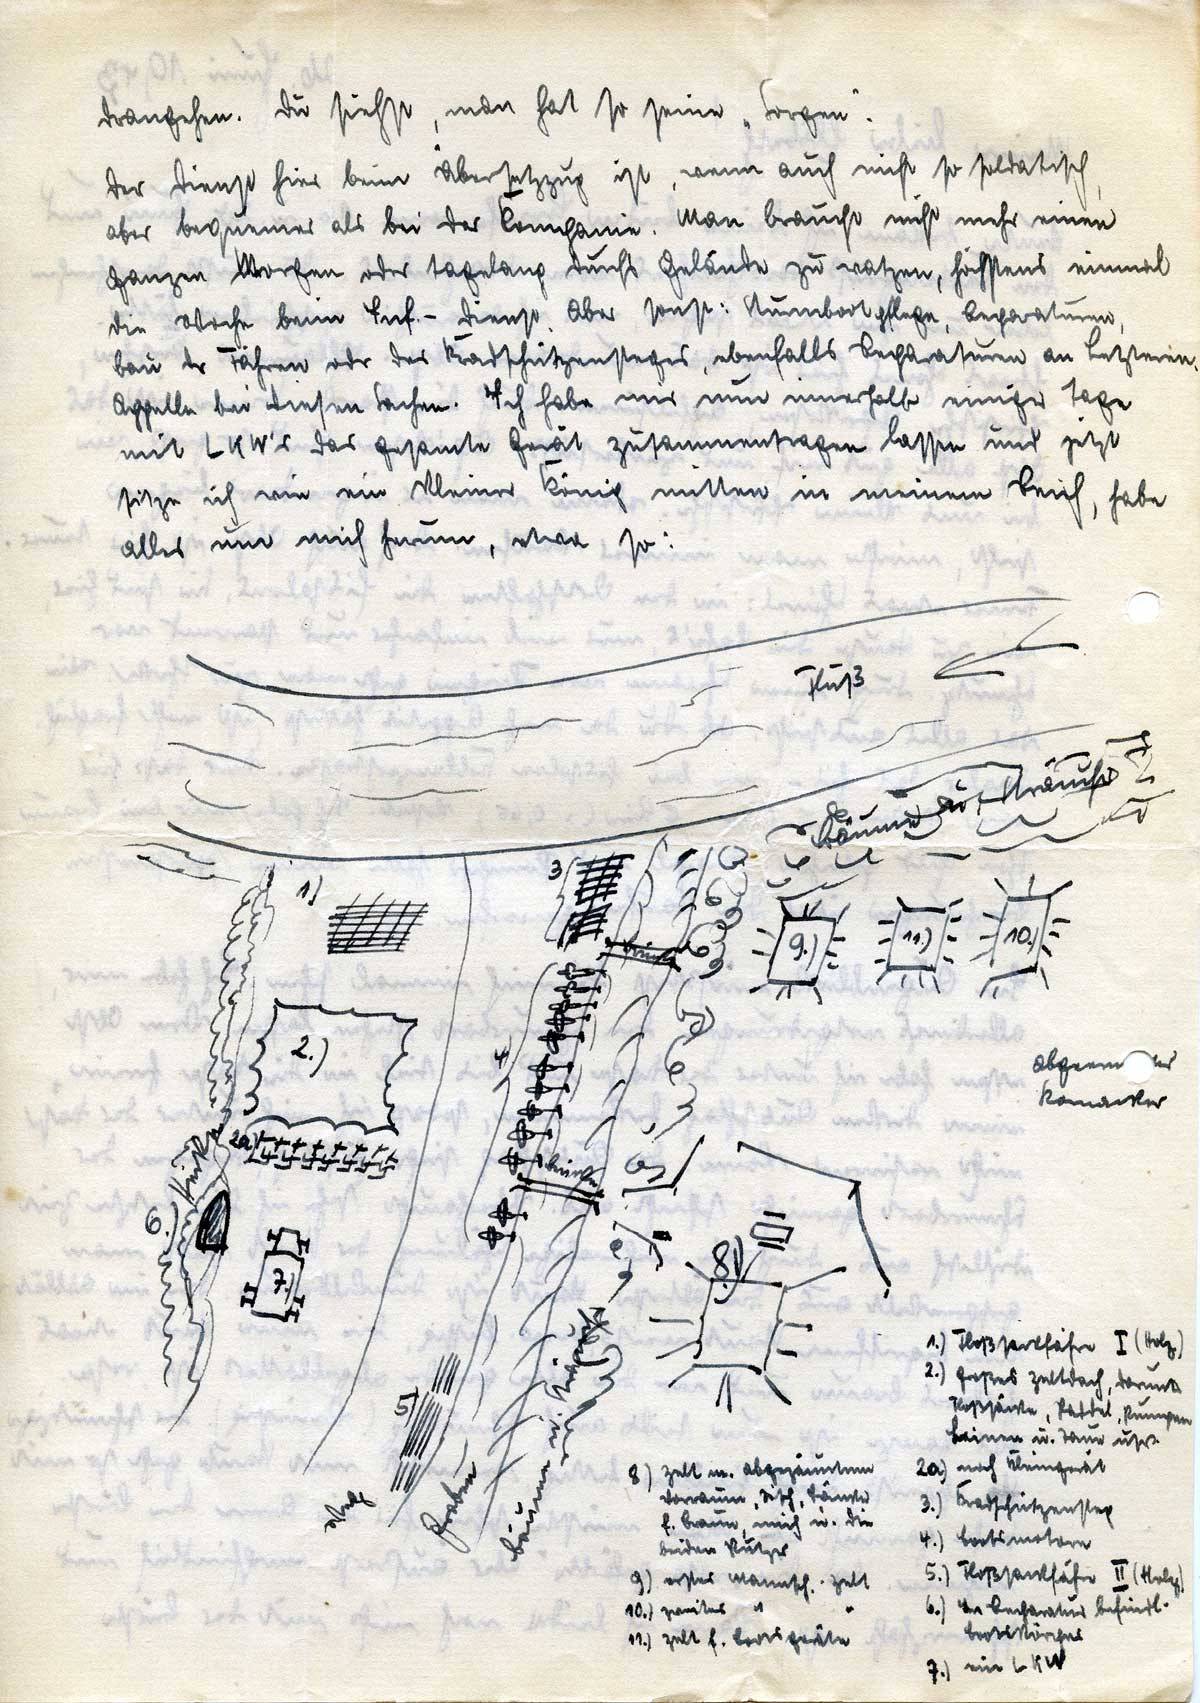 drangehen. Du siehst, man hat so seine „Sorgen".
Der Dienst hier beim Übersetzzug ist, wenn auch nicht so soldatisch,
aber bequemer als bei der Kompanie. Man braucht nicht mehr einen
ganzen Morgen oder tagelang durchs Gelände zu watzen, höchstens einmal
die Woche beim Inf.-Dienst. Aber sonst: Sturmbootpflege, Reparaturen,
bau der Fähren oder des Kradschützensteges, ebenfalls Reparaturen an Letzteren.
Appelle bei diesen Sachen. Ich habe mir nun innerhalb einiger Tage
mit LKW's das gesamte Gerät zusammentragen lassen und jetzt
sitze ich wie ein kleiner König mitten in meinem Reich, habe
alles um mich herum, etwa so:
Fluß
Bäume u. Sträucher
1.)
3
9.)
11.)
10.)
2.)
4)
2a)
6.)
7.)
8.)
5)
Graben
Bäume
1.) Floßsackfähre I (Holz)
2.) großes Zeltdach, darunter
Floßsäcke, Paddel, Pumpen
Leinen u. Taue usw.
2a) noch Kleingerät
3.) Kradschützensteg
4.) Bootsmotore
5.) Floßsackfähre II (Holz)
6.) in Reparatur befindl.
Bootskörper
7.) ein LKW
8) Zelt m. abgezäuntem
Vorraum, Tisch, Bänke
f. Braun, mich u. die
beiden Putzer
9) erstes Mannsch.-Zelt
10.) zweites " "
11.) Zelt f. Bootsgeräte